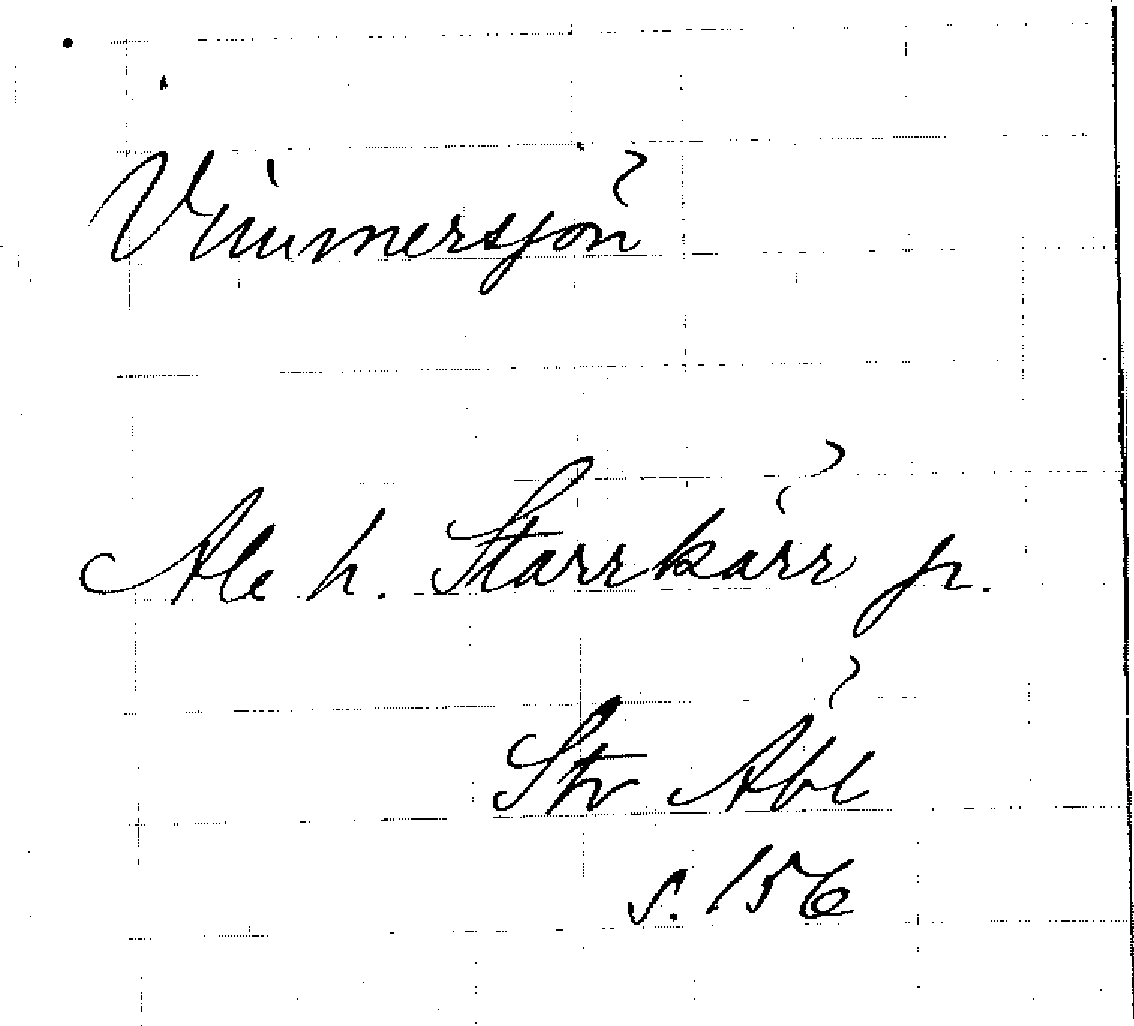 Vimmersjön
Ale h. Starrkärr sn.
Str Äbl
s. 156